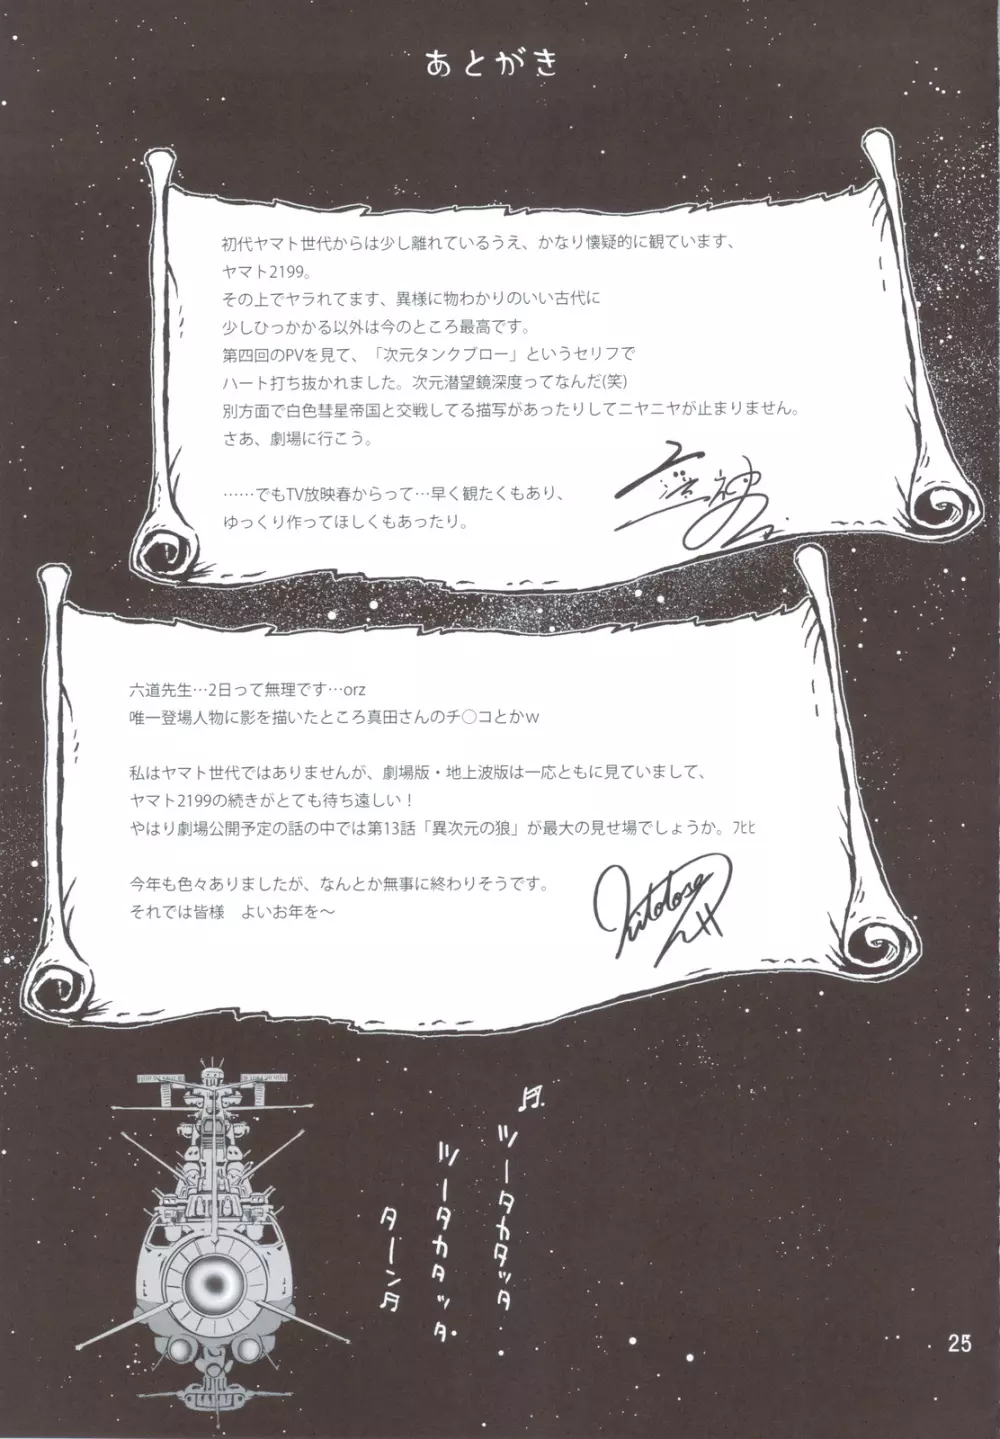 あとがき
初代ヤマト世代からは少し離れているうえ、かなり懐疑的に観ています、
ヤマト2199。
その上でヤラれてます、異様に物わかりのいい古代に
少しひっかかる以外は今のところ最高です。
第四回のPVを見て、「次元タンクブロー」というセリフで
ハート打ち抜かれました。次元潜望鏡深度ってなんだ(笑)
別方面で白色彗星帝国と交戦してる描写があったりしてニヤニヤが止まりません。
さあ、劇場に行こう。
……でもTV放映春からって…早く観たくもあり、
ゆっくり作ってほしくもあったり。
六道先生…2日って無理です…orz
唯一登場人物に影を描いたところ真田さんのチ〇コとかｗ
私はヤマト世代ではありませんが、劇場版・地上波版は一応ともに見ていまして、
ヤマト2199の続きがとても待ち遠しい！
やはり劇場公開予定の話の中では第13話「異次元の狼」が最大の見せ場でしょうか。ﾌﾋﾋ
今年も色々ありましたが、なんとか無事に終わりそうです。
それでは皆様　よいお年を～
♬ツータカタッタ
ツータカタッタ
ターン♬
25